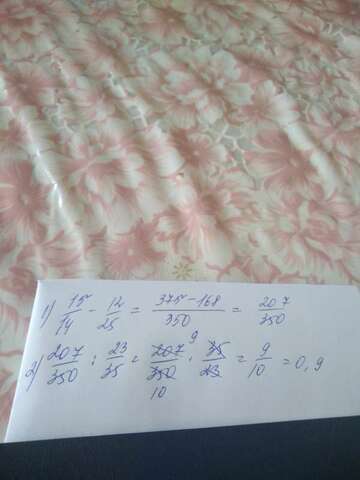 1) 15/14 - 12/25 = 375-168/350 = 207/350
2) 207/350 : 23/35 = 207/350 · 35/23 = 9/10 = 0,9
9
10